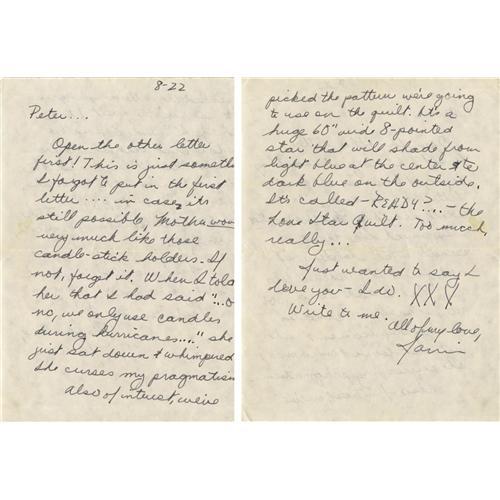 8-22
Peter....
Open the other letter
first! This is just somethi
I forgot to put in the first
letter.... in case it's
still possible, Mother wou
very much like those
candle-stick holders. If
not, forget it. When I told
her that I had said "...o
no, we only use candles
during hurricanes...." she
just sat down & whimpered
She curses my pragmatism
Also of interest, we've
picked the pattern we're going
to use on the quilt. It's a
huge 60" wide 8-pointed
star that will shade from
light blue at the center to
dark blue on the outside.
It's called - READY?.... - the
Lone Star Quilt. Too much,
really...
Just wanted to say I
love you - I do. XXX
Write to me.
All of my love,